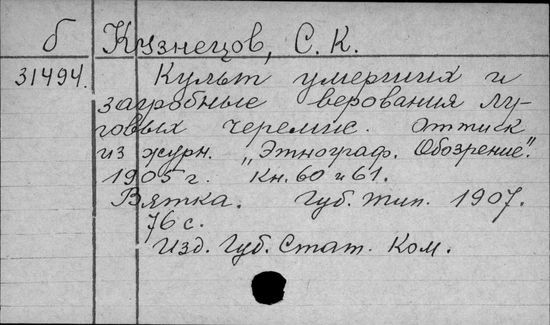 б Кузнецов, С. К.
31494. Культ умерших и
загробные верования лу-
говых черемис. Оттиск
из журн. „Этнограф. Обозрение".
1905 г. Кн. 60 и 61.
Вятка. Губ. тип. 1907.
76 с.
Изд. Губ. Стат. Ком.